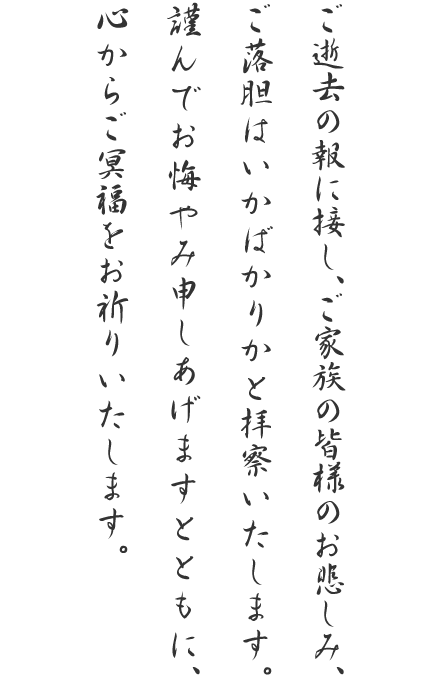 ご逝去の報に接し、ご家族の皆様のお悲しみ、
ご落胆はいかばかりかと拝察いたします。
謹んでお悔やみ申しあげますとともに、
心からご冥福をお祈りいたします。